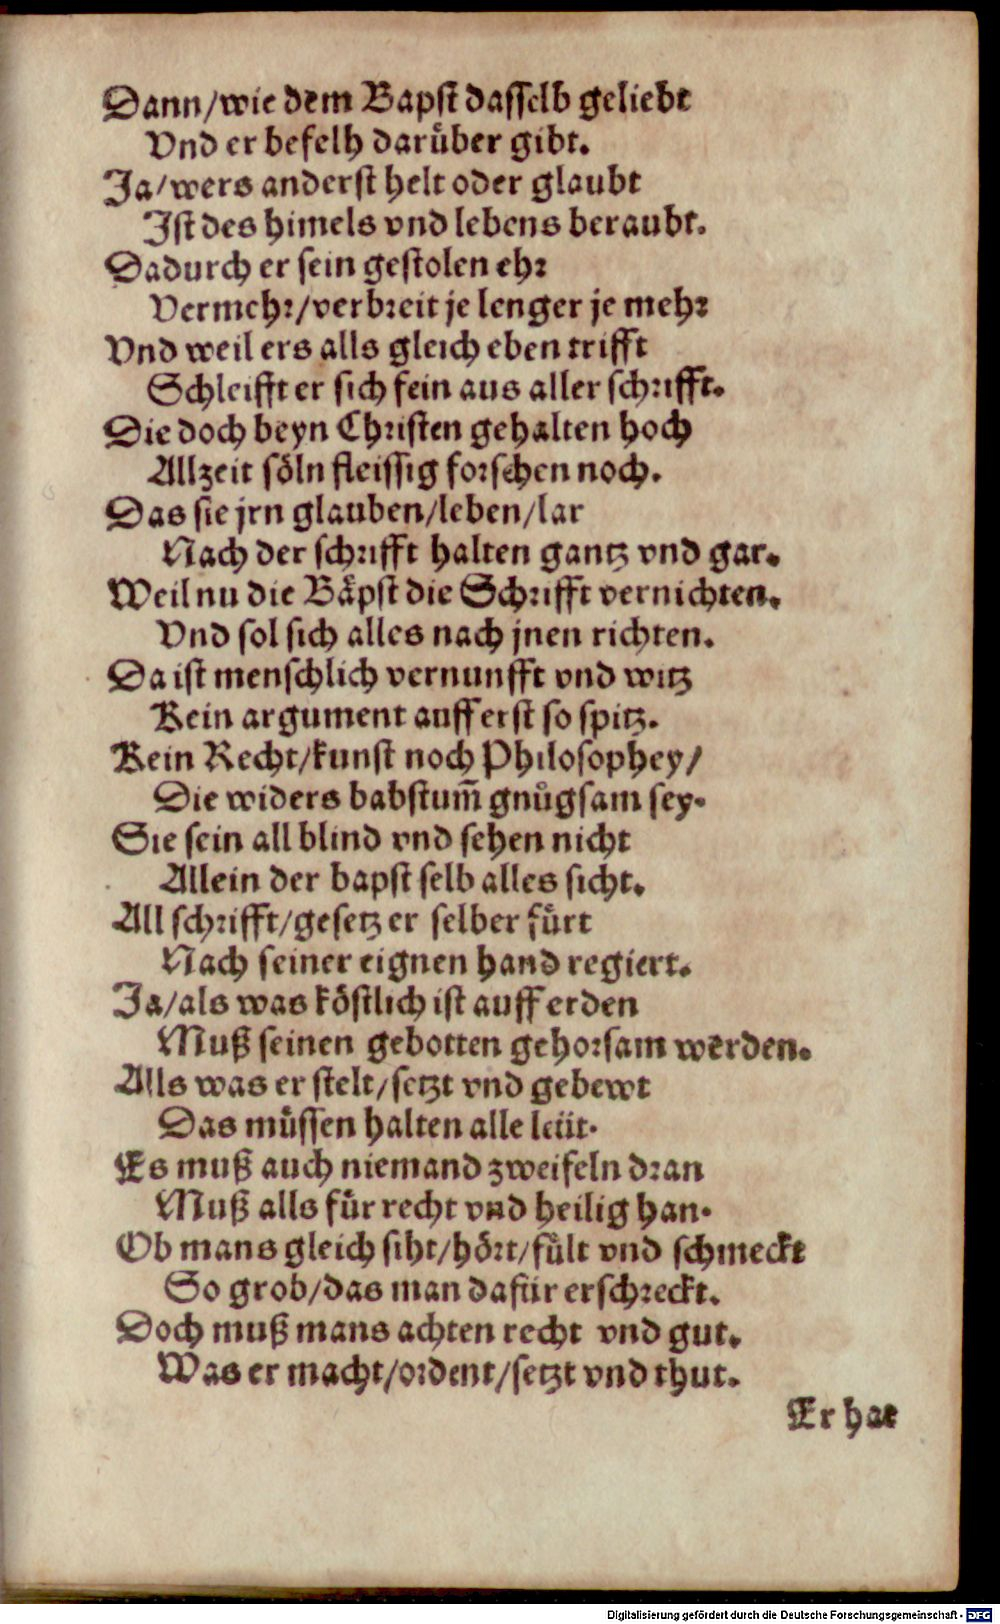 Dann/wie dem Bapst dasselb geliebt
Vnd er befelh darüber gibt.
Ja/wers anderst helt oder glaubt
Ist des himels vnd lebens beraubt.
Dadurch er sein gestolen ehr
Vermehr/verbreit je lenger je mehr
Vnd weil ers alls gleich eben trifft
Schleifft er sich fein aus aller schrifft.
Die doch beyn Christen gehalten hoch
Allzeit söln fleissig forschen noch.
Das sie jrn glauben/leben/lar
Nach der schrifft halten gantz vnd gar.
Weil nu die Bäpst die Schrifft vernichten.
Vnd sol sich alles nach jnen richten.
Da ist menschlich vernunfft vnd witz
Kein argument auff erst so spitz.
Kein Recht/kunst noch Philosophey/
Die widers babstum̃ gnůgsam sey.
Sie sein all blind vnd sehen nicht
Allein der bapst selb alles sicht.
All schrifft/gesetz er selber fürt
Nach seiner eignen hand regiert.
Ja/als was köstlich ist auff erden
Muß seinen gebotten gehorsam werden.
Alls was er stelt/setzt vnd gebewt
Das müssen halten alle leüt.
Es muß auch niemand zweifeln dran
Muß alls für recht vnd heilig han.
Ob mans gleich siht/hört/fült vnd schmeckt
So grob/das man dafür erschreckt.
Doch muß mans achten recht vnd gut.
Was er macht/ordent/setzt vnd thut.
Er hat
Digitalisierung gefördert durch die Deutsche Forschungsgemeinschaft - DFG